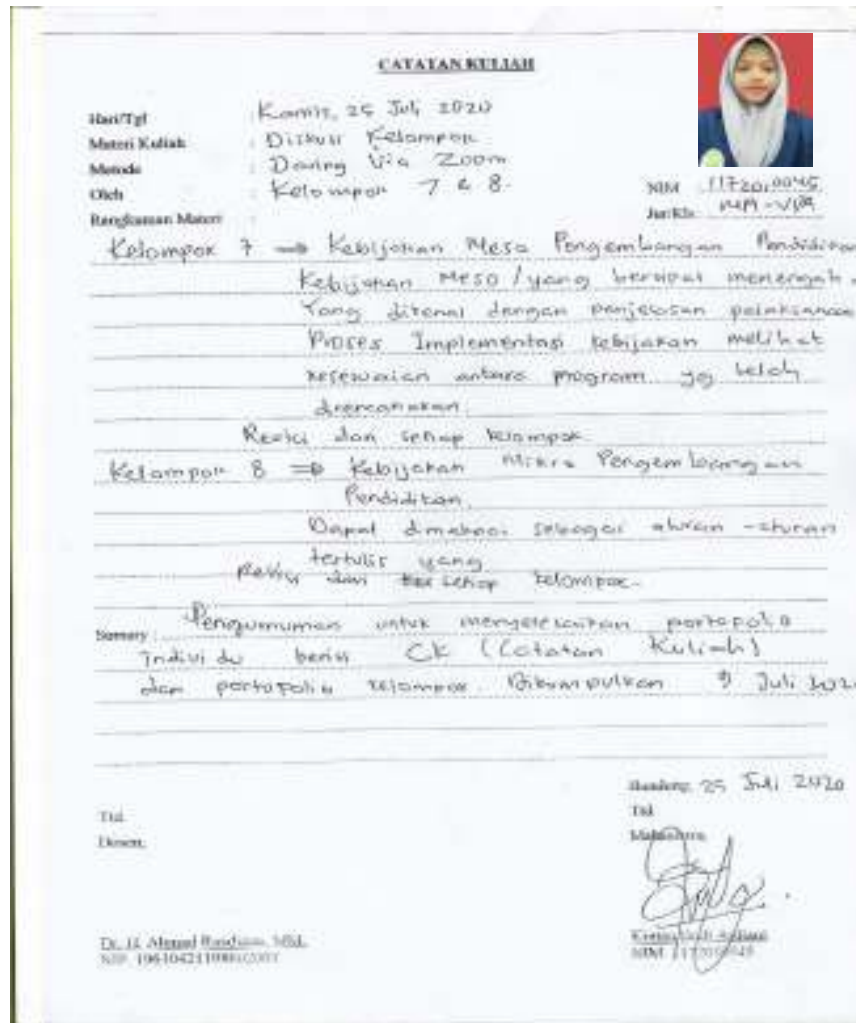 CATATAN KULIAH
Hari/Tgl : Kamis, 25 Juli 2020
Materi Kuliah : Diskusi Kelompok
Metode : Daring Via Zoom
Oleh : Kelompok 7 & 8.
NIM : 1172010045
Jur/Kls :
Rangkuman Materi :
Kelompok 7 ⇒ Kebijakan Meso Pengembangan Pendidikan
Kebijakan Meso / yang bersifat menengah
Yang dikenal dengan penjelasan pelaksanaan
Proses Implementasi kebijakan melihat
kesesuaian antara program yg telah
direncanakan.
dan setiap kelompok
Kelompok 8 ⇒ Kebijakan Mikro Pengembangan
Pendidikan.
Dapat dimaknai sebagai aturan -aturan
tertulis yang
setiap kelompok.
Pengumuman untuk menyelesaikan portopolio
Sumary :
individu berisi CK (Catatan Kuliah)
dan portopolio kelompok. Dikumpulkan 9 Juli
Bandung, 25 Juli 2020
Ttd. Ttd.
Dosen, Mahasiswa,
Dr. H. Ahmad MSi.
NIP.
NIM 1172010045